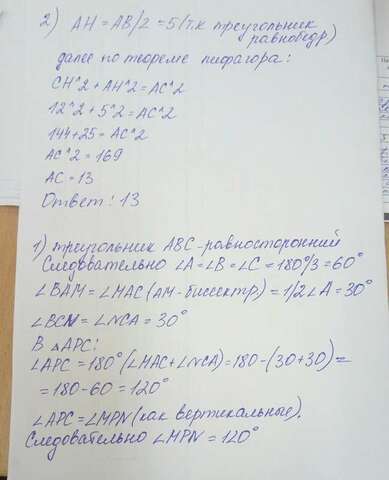 2) AH = AB/2 = 5 (т.к треугольник
равнобедр)
далее по теореме пифагора:
CH^2 + AH^2 = AC^2
12^2 + 5^2 = AC^2
144 + 25 = AC^2
AC^2 = 169
AC = 13
Ответ: 13
1) треугольник ABC - равносторонний
Следовательно ∠A = ∠B = ∠C = 180°/3 = 60°
∠BAM = ∠MAC (AM - биссектр) = 1/2 ∠A = 30°
∠BCN = ∠NCA = 30°
В △APC:
∠APC = 180° (∠MAC + ∠NCA) = 180 - (30 + 30) =
= 180 - 60 = 120°
∠APC = ∠MPN (как вертикальные).
Следовательно ∠MPN = 120°